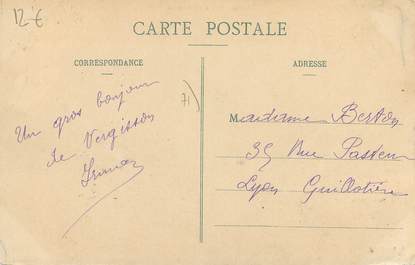 12€
CARTE POSTALE
CORRESPONDANCE
ADRESSE
71)
Un gros bonjour
de Vergisson
Madame Berton
35 Rue Pasteur
Lyon Guillotière